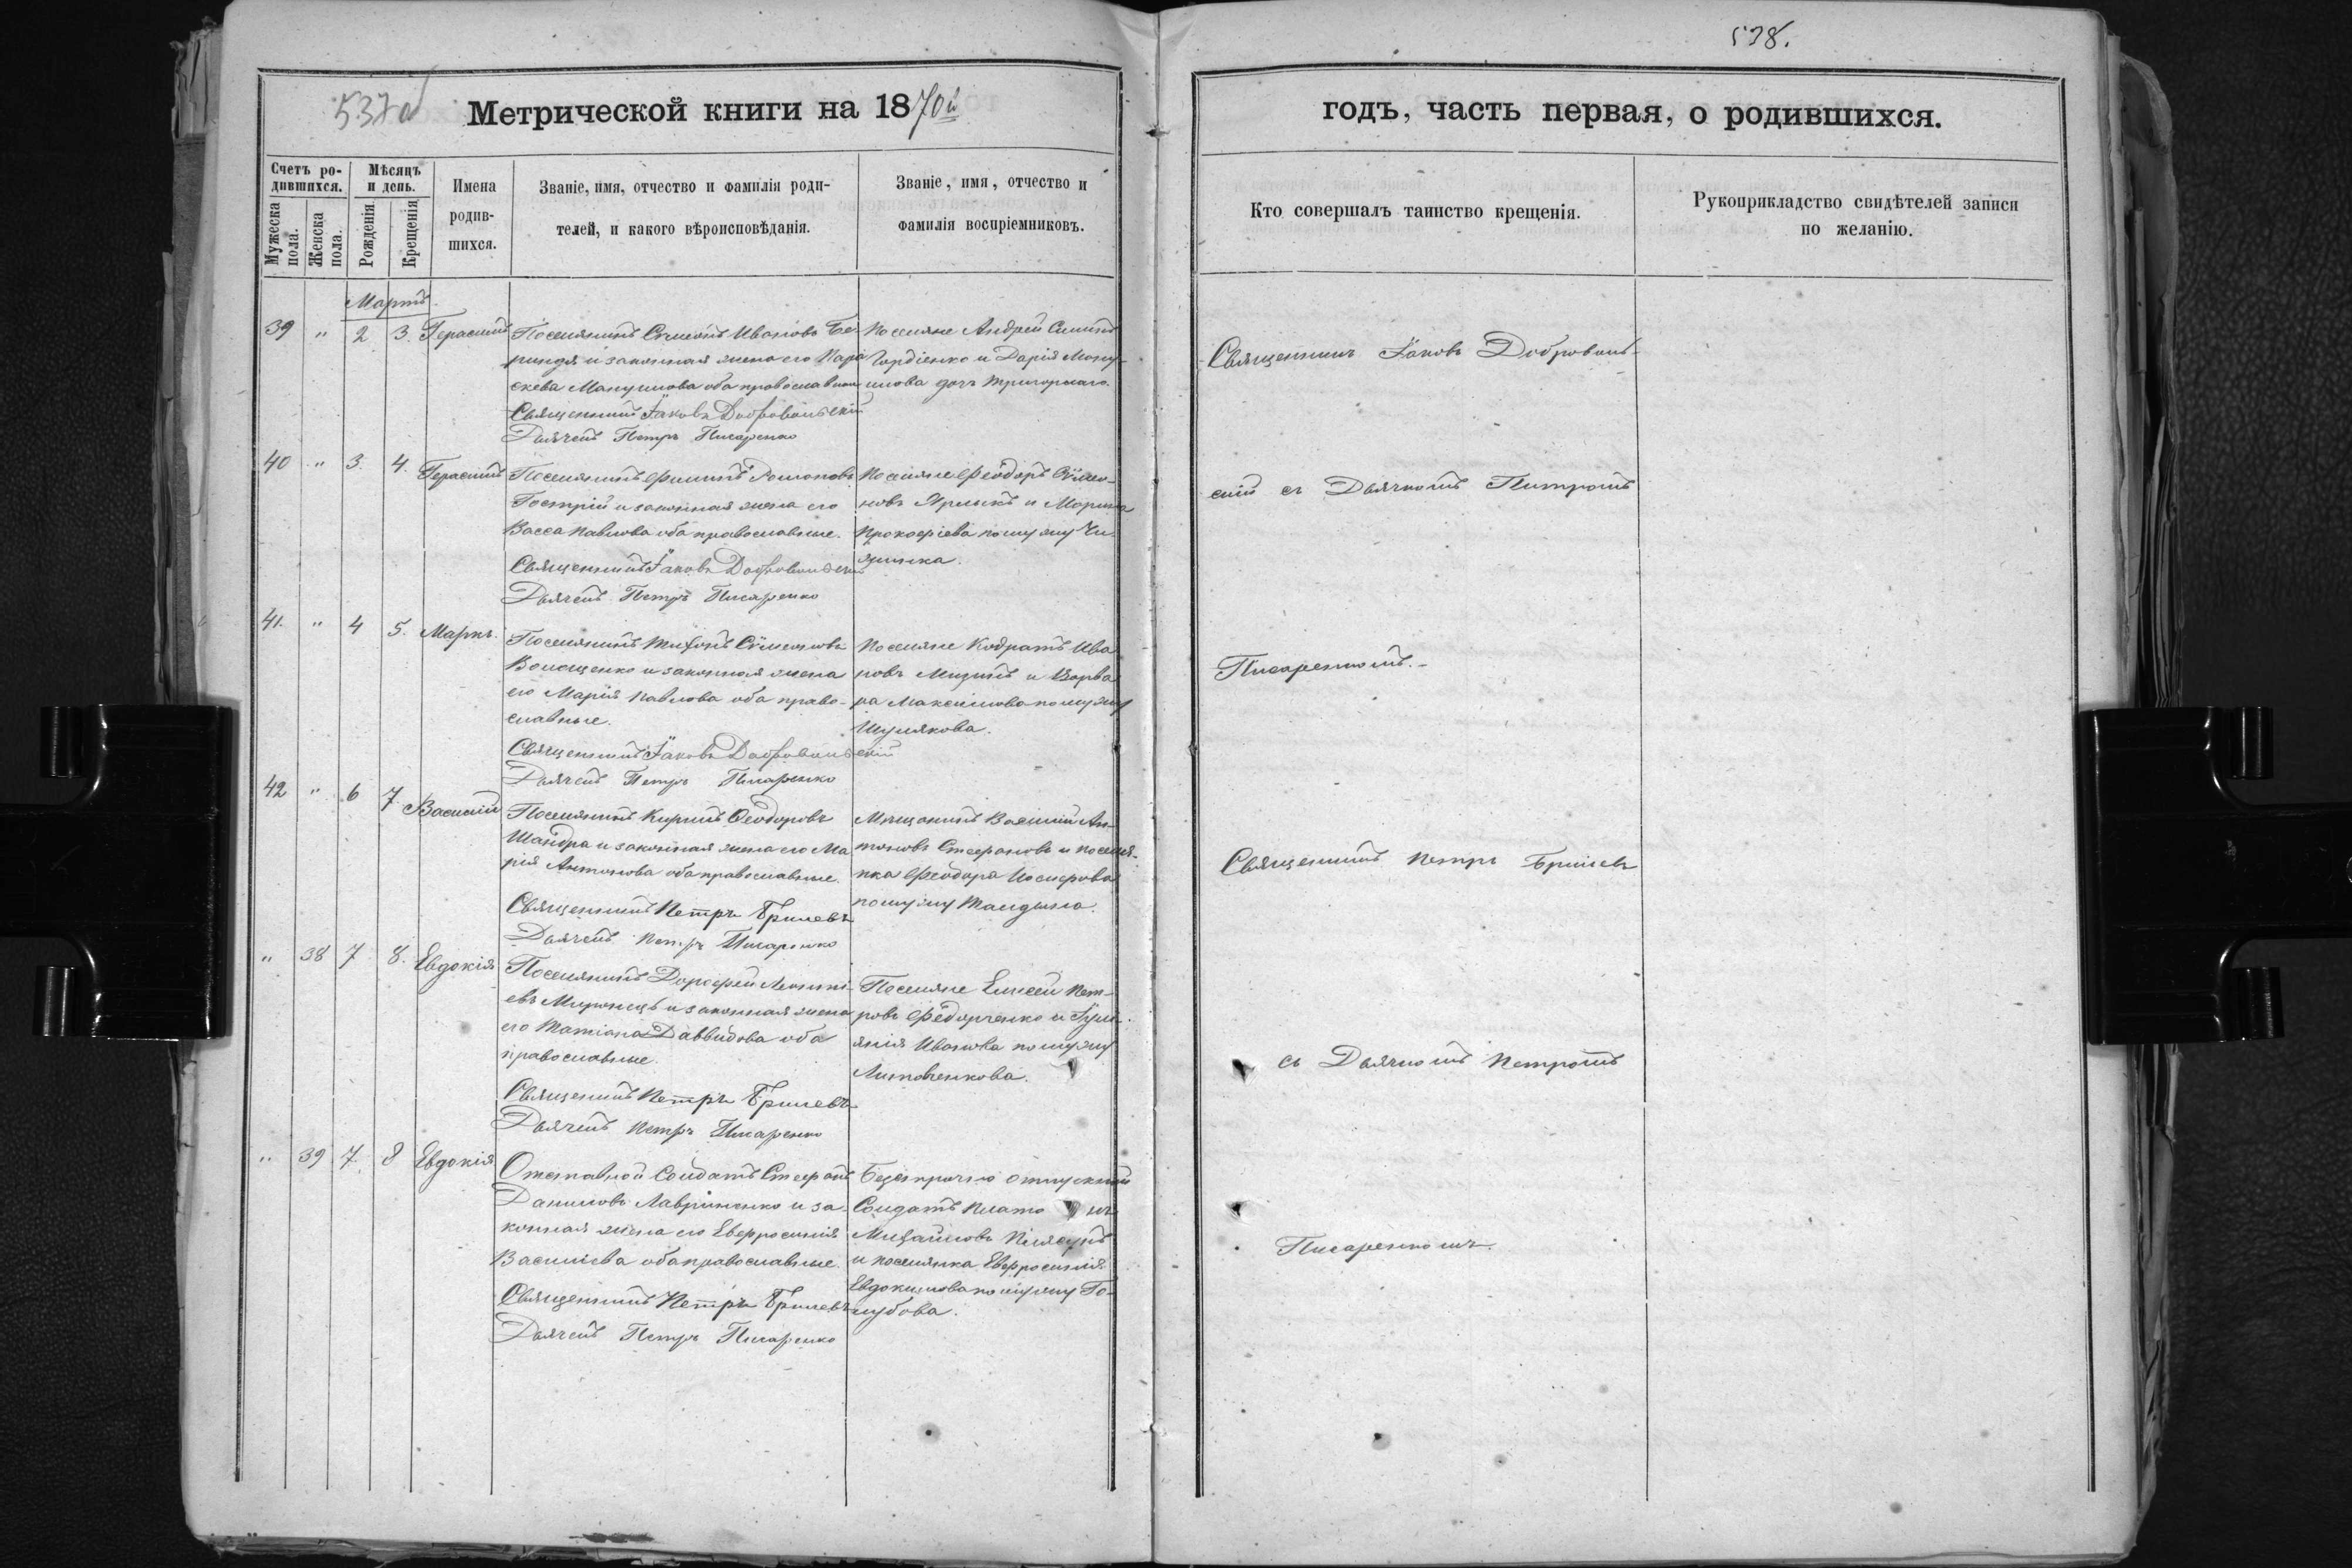 538.
537об
Метрической книги на 1870й
годъ, часть первая, о родившихся.
Счетъ ро-
дившихся.
Мужеска пола.
Женска пола.
Мѣсяцъ и день.
Рожденія
Крещенія
Имена родив-
шихся.
Званіе, имя, отчество и фамилія роди-
телей, и какого вѣроисповѣданія.
Званіе, имя, отчество и
фамилія воспріемниковъ.
Кто совершалъ таинство крещенія.
Рукоприкладство свидѣтелей записи
по желанію.
Мартъ
39 " 2 3. Герасимъ
Поселянинъ Сѵмеонъ Ивановъ Бе-
риндя и законная жена его Пара
скева Мануилова оба православные
Священникъ Іаковъ Добровольскій
Дьячекъ Петръ Писаренко
Поселяне Андрей
Гордіенко и Дарія Ману-
илова дочь
40 " 3. 4. Герасимъ
Поселянинъ Филипъ Романовъ
Гострій и законная жена его
Васса Павлова оба православные.
Священникъ Іаковъ Добровольскій
Дьячекъ Петръ Писаренко
Поселяне Феодоръ Сѵмео-
новъ Ярлыкъ и Марина
Прокофіева по мужу Чи-
жика.
41. " 4 5. Маркъ.
Поселянинъ Тихонъ Сѵмеоновъ
Волощенко и законная жена
его Марія Павлова оба право-
славные.
Священникъ Іаковъ Добровольскій
Дьячекъ Петръ Писаренко
Поселяне Кодратъ Ива
новъ Мизинъ и Варва
ра Максимова по мужу
Шулякова.
42 " 6 7 Василій
Поселянинъ Кирилъ Феодоровъ
Шандра и законная жена его Ма
рія Антонова оба православные.
Священникъ Петръ Брилевъ
Дьячекъ Петръ Писаренко
Мѣщанинъ Василій Ан-
тоновъ Стефановъ и поселя-
нка Феодора Иосифова
по мужу
" 38 7 8. Евдокія
Поселянинъ Дорофей Леонті-
евъ Миронецъ и законная жена
его Татіана Даввидова оба
православные.
Священникъ Петръ Брилевъ
Дьячекъ Петръ Писаренко
Поселяне Елисей Пет-
ровъ Федорченко и Іулі-
янія Иванова по мужу
Литовченкова.
" 39 7. 8 Евдокія
Отставной Солдатъ Стефанъ
Даниловъ Лавриненко и за-
конная жена его Евфросинія
Василіева оба православные.
Священникъ Петръ Брилевъ
Дьячекъ Петръ Писаренко
Безсрочно отпускный
Солдатъ Плато нъ
Михайловъ
и поселянка Евфросинія
Евдокимова по мужу Го-
лубова.
Священникъ Іаковъ Доброволь-
скій съ Дьячкомъ Петромъ
Писаренкомъ.-
Священникъ Петръ Брилевъ
съ Дьячкомъ Петромъ
Писаренкомъ.